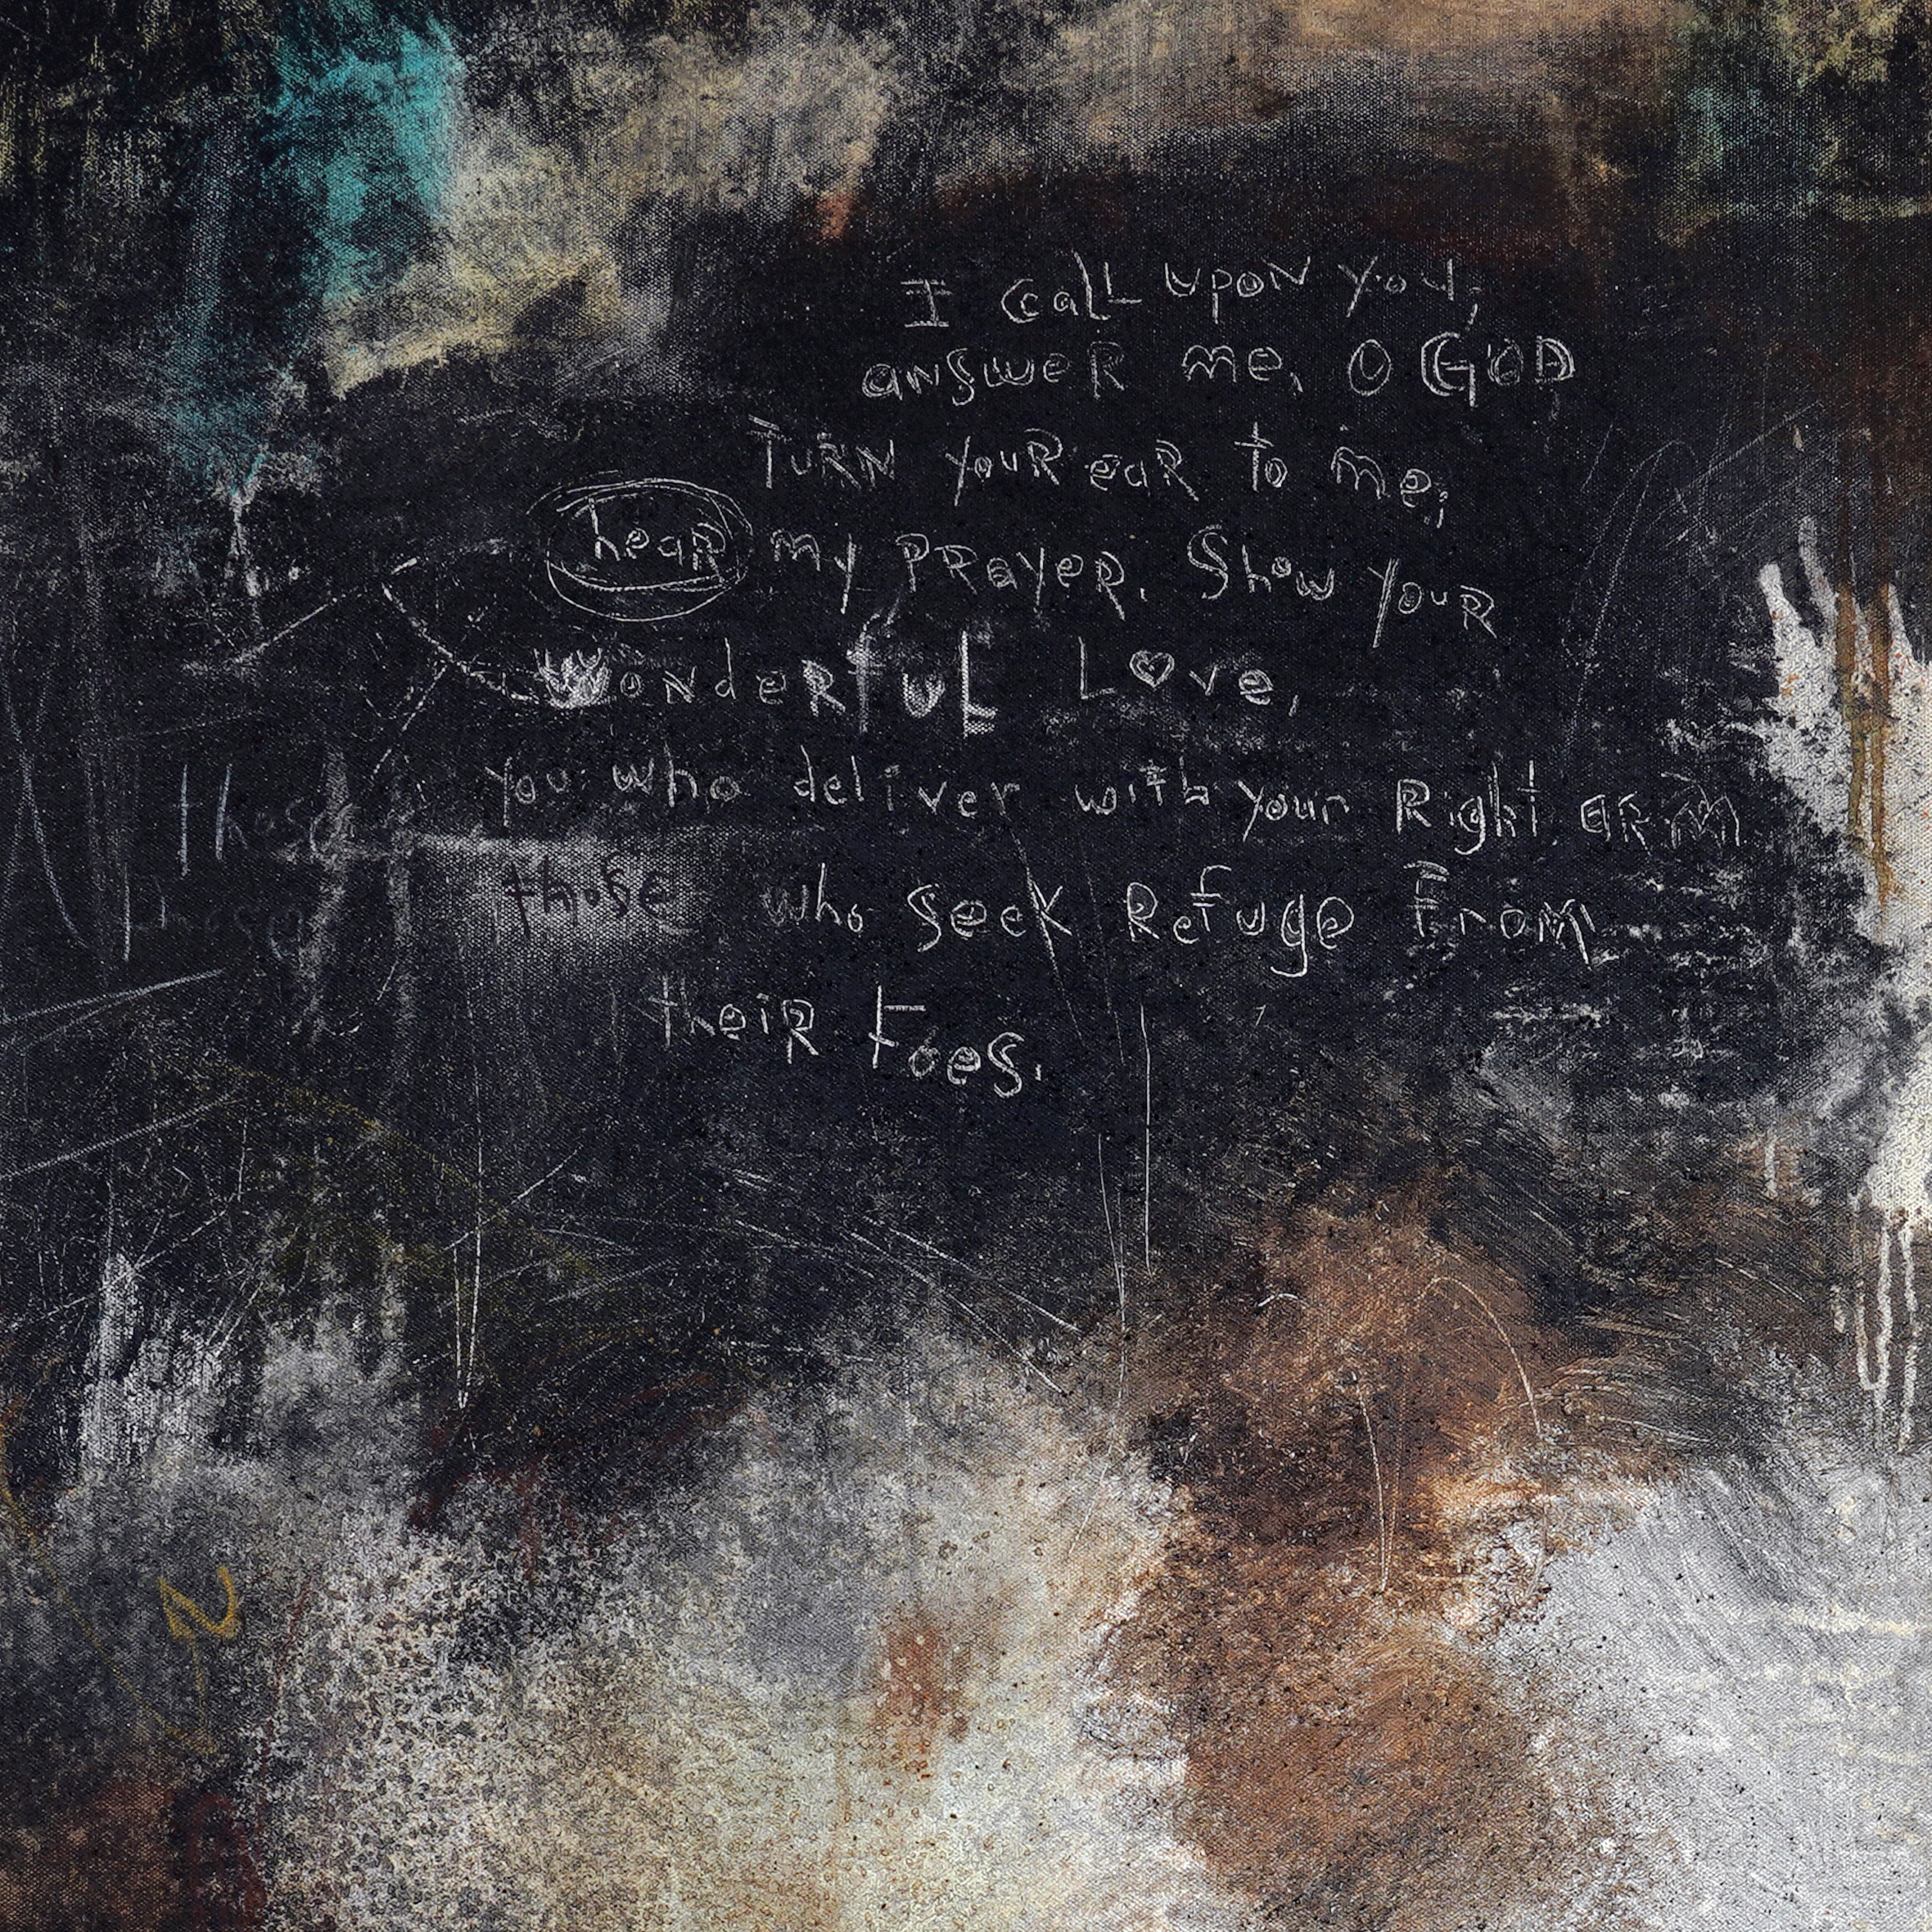 I call upon you,
answer me, O GOD
Turn your ear to me;
hear my prayer. Show your
wonderful Love,
you who deliver with your Right arm
those who seek Refuge From
their foes.